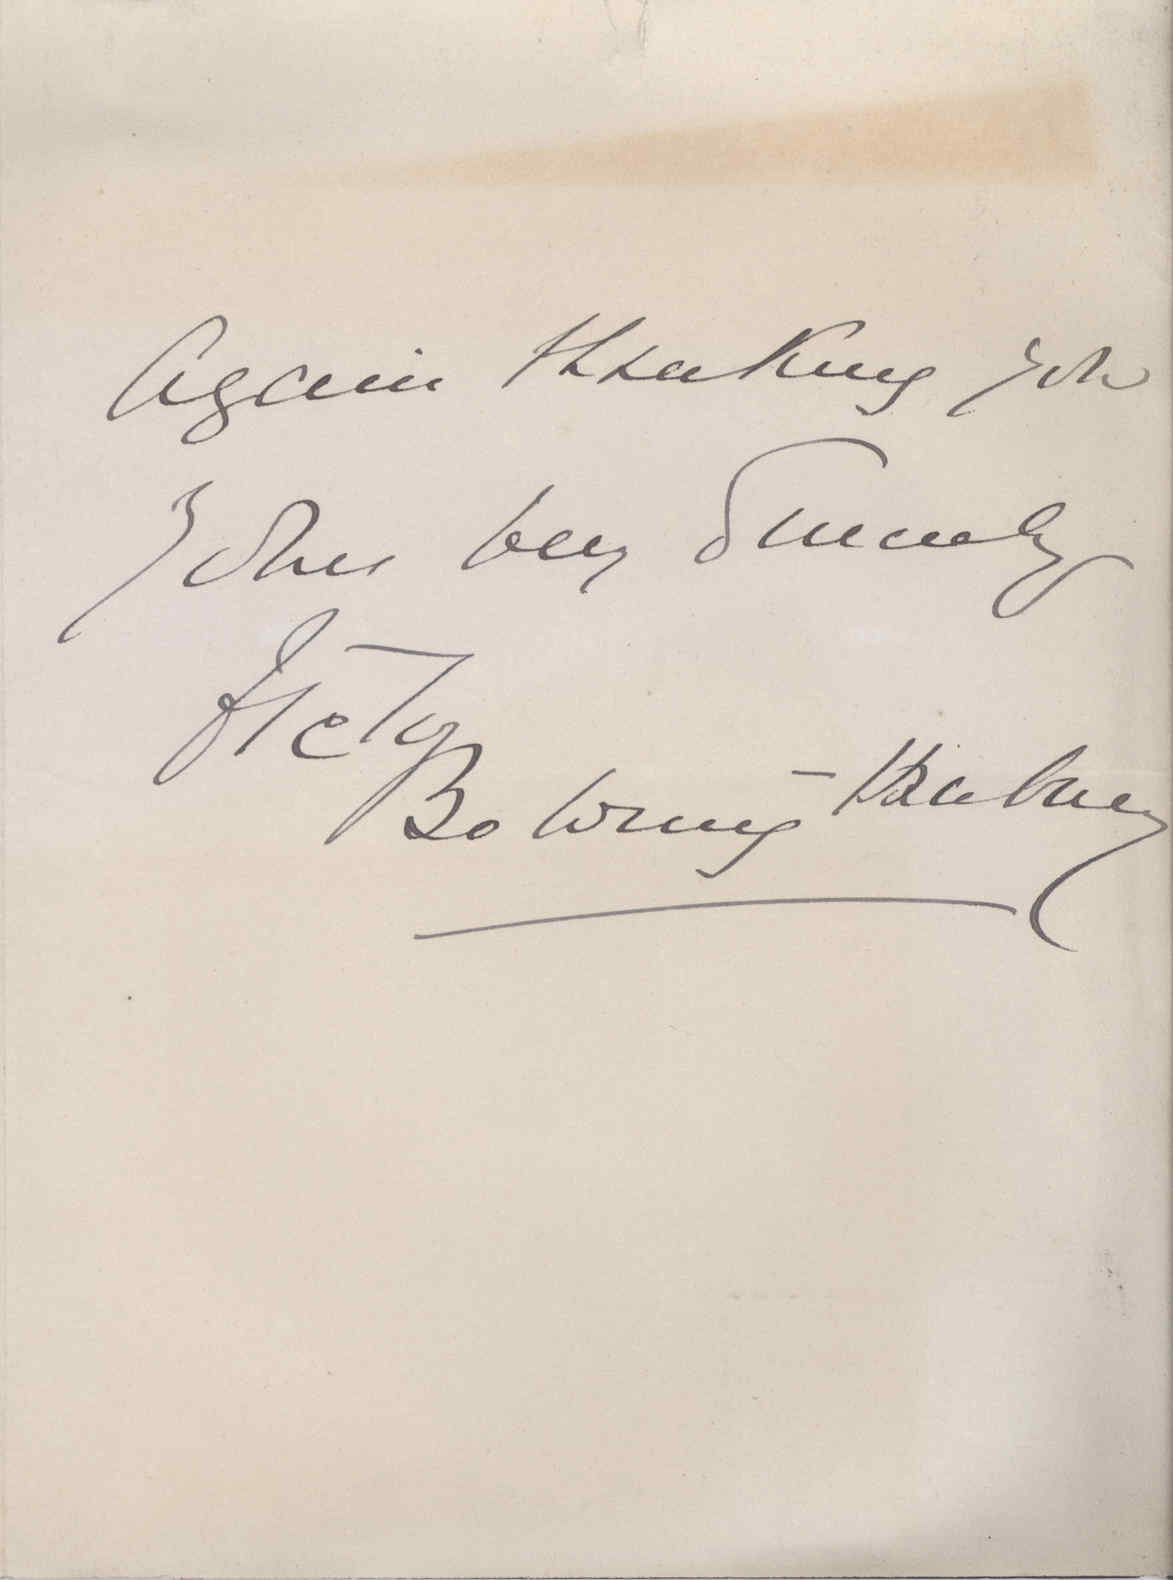 Again thanking you
Yours very Sincerely
Bowring-Hanbury